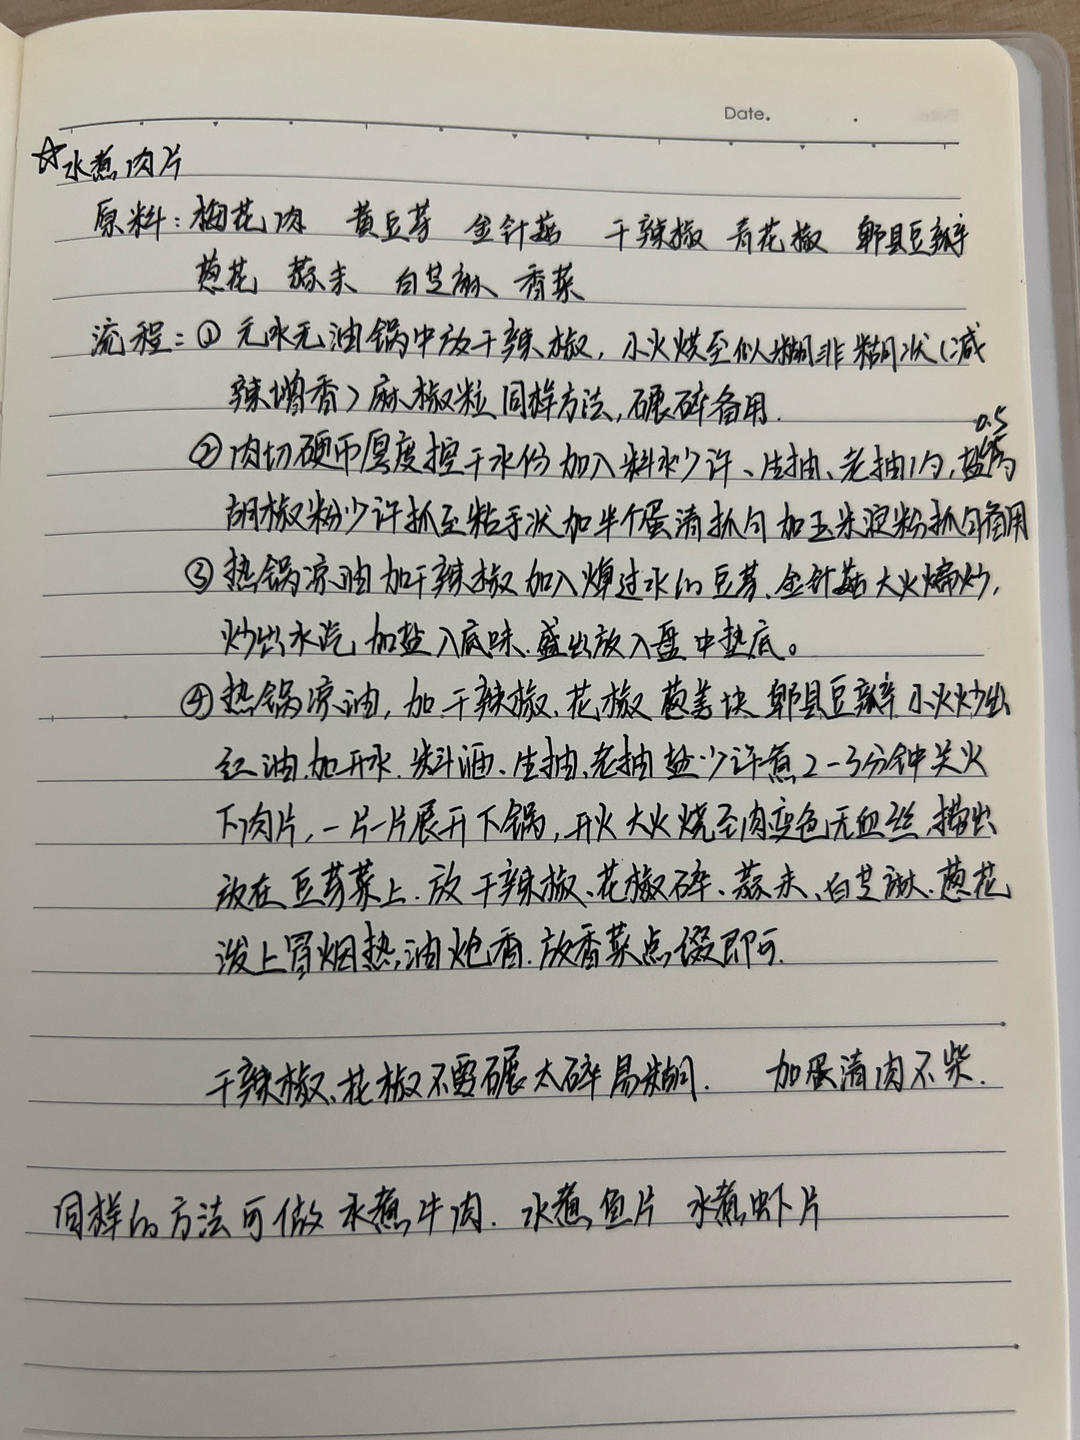 Date.
☆水煮肉片
原料：梅花肉 黄豆芽 金针菇 干辣椒 青花椒 郫县豆瓣
葱花 蒜末 白芝麻 香菜
流程：① 无水无油锅中放干辣椒，小火烘至似糊非糊状（减
辣增香）麻椒粒同样方法，碾碎备用.
0.5
② 肉切硬币厚度控干水份加入料水少许、生抽、老抽1勺，盐勺
胡椒粉少许抓至粘手状加半个蛋清抓匀加玉米淀粉抓匀备用
③ 热锅凉油加干辣椒加入焯过水的豆芽、金针菇大火煸炒，
炒出水汽，加盐入底味、盛出放入盘中垫底。
④ 热锅凉油，加干辣椒、花椒葱姜块郫县豆瓣小火炒出
红油.加开水.料酒、生抽、老抽盐少许煮2-3分钟关火
下肉片，一片一片展开下锅，开火大火烧至肉变色无血丝，捞出
放在豆芽菜上.放干辣椒、花椒碎、蒜末、白芝麻、葱花
泼上冒烟热油炝香.放香菜点缀即可.
干辣椒、花椒不要碾太碎易糊. 加蛋清肉不柴.
同样的方法可做水煮牛肉. 水煮鱼片 水煮虾片